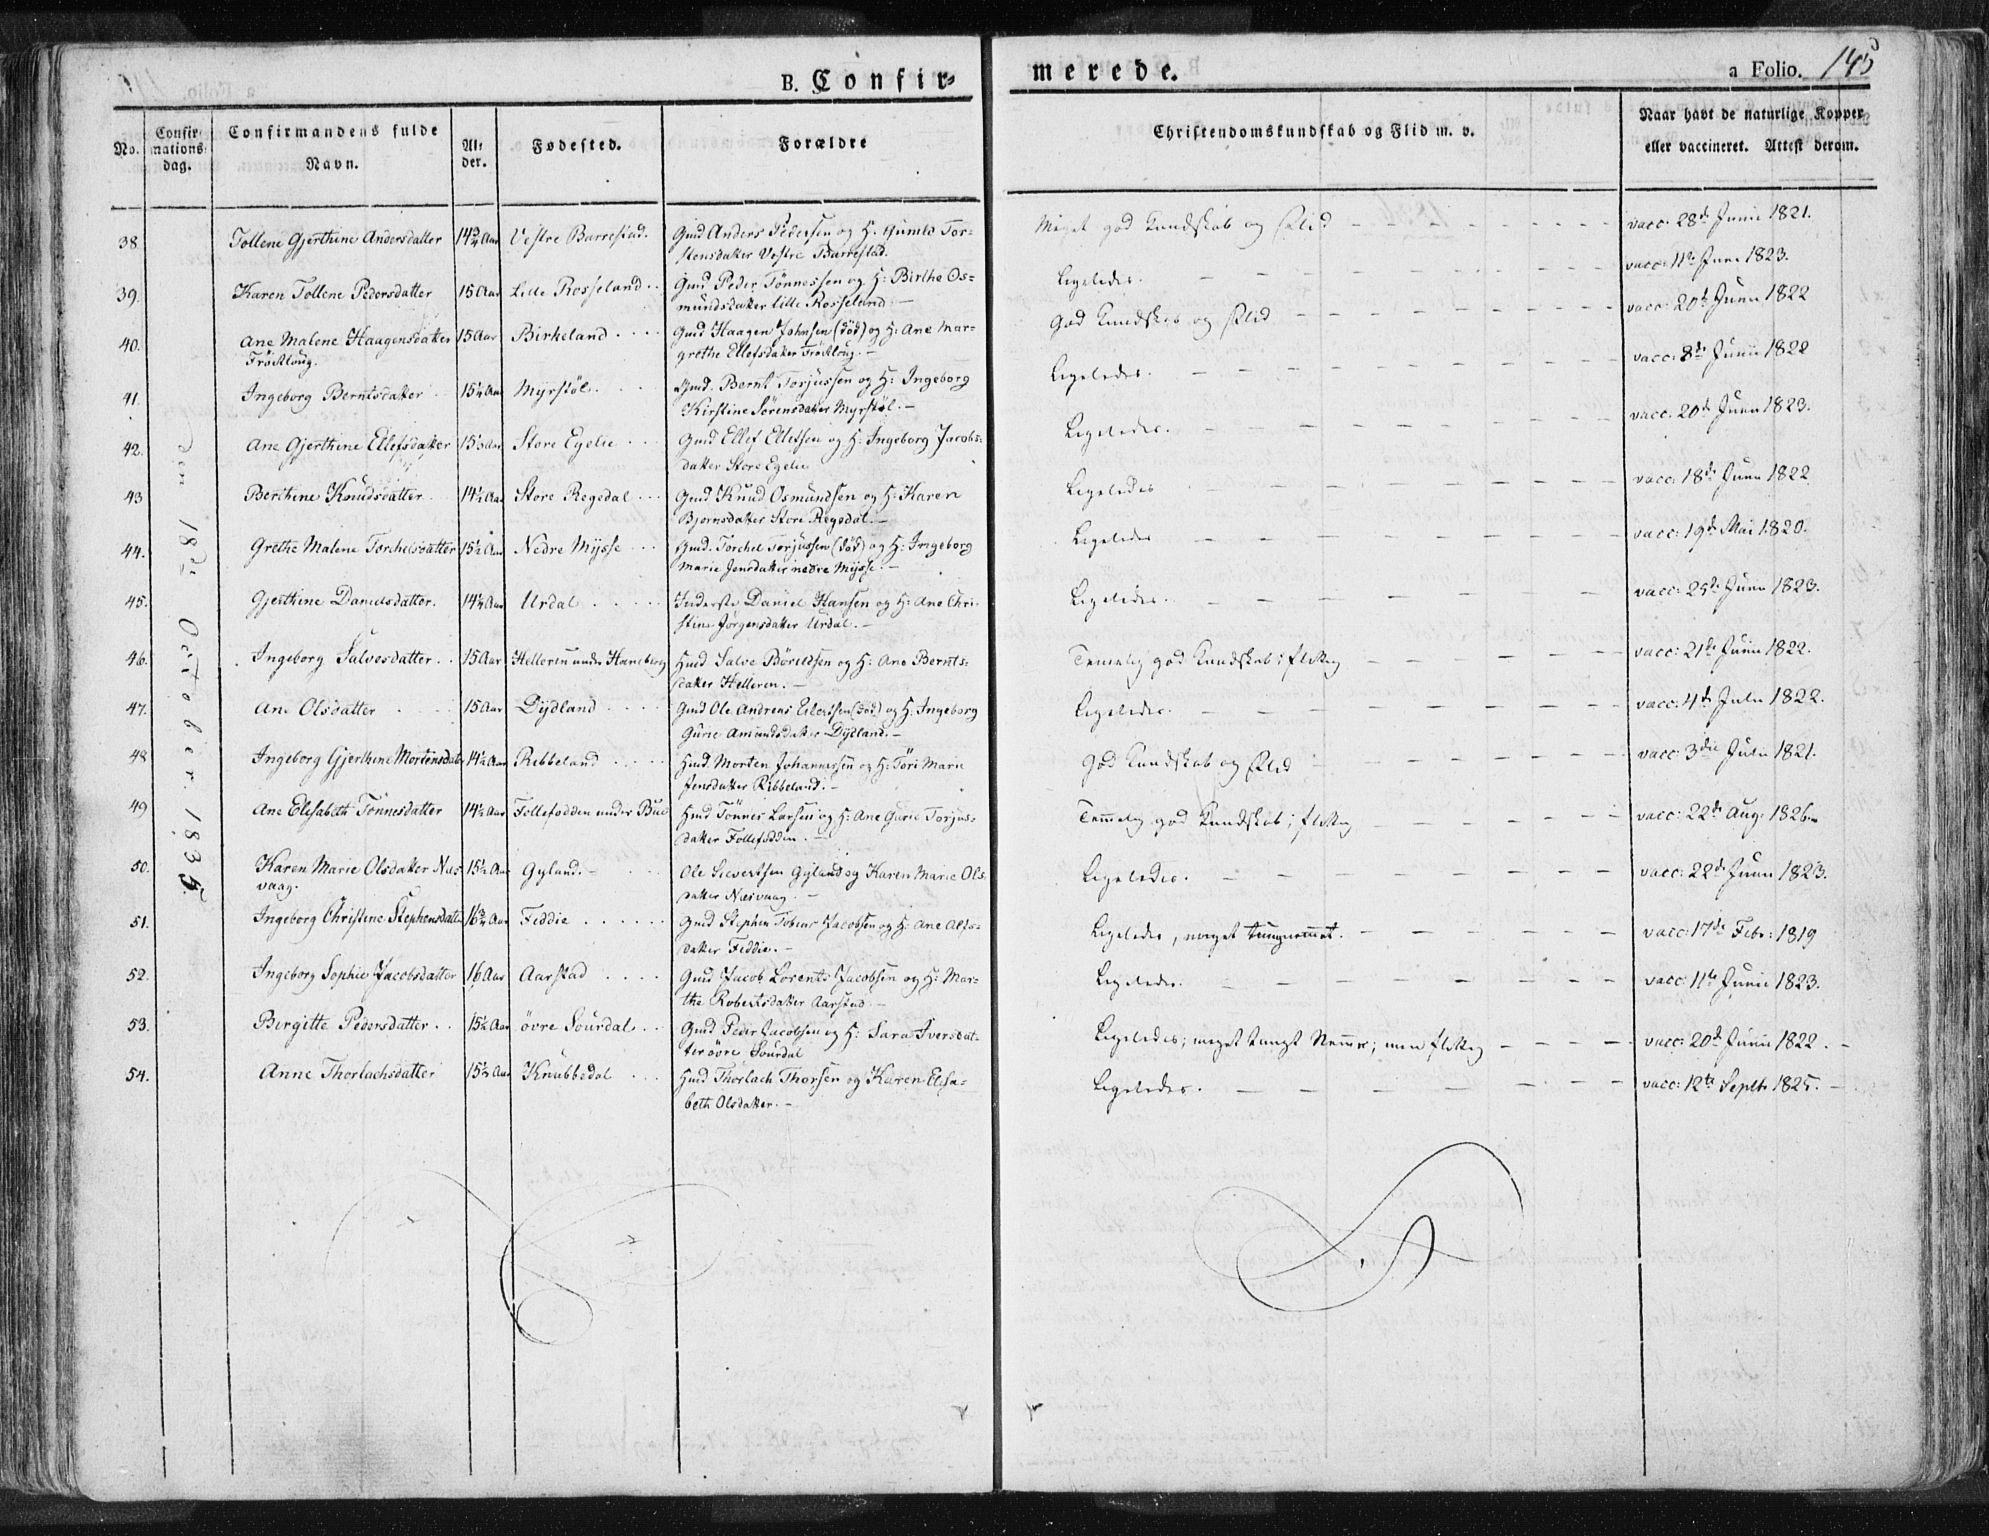 B. Confir-
merede.
a Folio. 145
No.
Confir-
mations-
dag.
Confirmandens fulde
Navn.
Al-
der.
Fødested.
Forældre
Christendomskundskab og Flid m. v.
Naar havt de naturlige Kopper
eller vaccineret. Attest derom.
den 18de October 1835.
38. Tollene Gjerthine Andersdatter 14¾ Aar Vestre Barrestad. Gmd Anders Pedersen og H. Tor-
stensdatter Vestre Barrestad. Meget god Kundskab og Flid vacc: 28de Junii 1821.
39. Karen Tollene Pedersdatter 15 Aar Lille Rosseland Gmd Peder Tønnessen og H: Birthe Os-
mundsdatter lille Rosseland. Ligeledes. vacc: 11te Juni 1823.
40. Ane Malene Haagensdatter 15 Aar Birkeland Gmd Haagen Johnsen (død) og H: Ane Mar-
Frøitloug. grethe Ellefsdatter Frøitloug. God Kundskab og Flid vacc: 20de Junii 1822
41. Ingeborg Berntsdatter 15¼ Aar Myrstøl. Gmd. Bernt Torjussen og H: Ingeborg
Kirstine Sørensdatter Myrstøl. Ligeledes. vacc: 8de Junii 1822
42. Ane Gjerthine Ellefsdatter 15⅓ Aar Store Egelie Gmd Ellef Ellefsen og H: Ingeborg Jacobs-
datter Store Egelie Ligeledes. vacc: 20de Junii 1823.
43 Berthine Knudsdatter 14½ Aar Store Regedal Gmd Knud Osmundsen og H: Karen
Bjornsdatter Store Regedal. Ligeledes vacc: 18de Junii 1822
44. Grethe Malene Torchelsdatter 15½ Aar Nedre Mysse Gmd. Torchel Torjussen (død) og H: Ingeborg
Marie Jensdatter nedre Mysse. Ligeledes vacc: 19de Mai 1820.
45. Gjerthine Danielsdatter. 14¼ Aar Urdal Inderste Daniel Hansen og H: Ane Chri-
stine Jørgensdatter Urdal. Ligeledes. vacc: 25de Junii 1823.
46. Ingeborg Salvesdatter 15 Aar Helleren under Haneberg Hmd Salve Børildsen og H: Ane Bernts-
datter Helleren. Temelig god Kundskab; flittig vacc: 21de Junii 1822.
47. Ane Olsdatter 15 Aar Dydland Gmd Ole Andreas Eilertsen (død) og H: Ingeborg
Gurie Amundsdatter Dydland. Ligeledes. vacc: 4de Julii 1822.
48 Ingeborg Gjerthine Mortensdatt 14½ Aar Ribbeland Hmd Morten Johannessen og H: Tori Marie
Jensdatter Ribbeland. God Kundskab og Flid vacc: 3die Julii 1821.
49 Ane Elisabeth Tønnesdatter 14½ Aar Follefodden under Bue Hmd Tønnes Larsen og H: Ane Gurie Torjus-
datter Follefodden. Temelig god Kundskab; flittig vacc: 22de Aug: 1826.
50. Karen Marie Olsdatter Næs- 15½ Aar Gyland. Ole Sievertsen Gyland og Karen Marie Ols-
vaag. datter Næsvaag. Ligeledes. vacc: 22de Junii 1823.
51. Ingeborg Christine Stephensdatter 16¾ Aar Feddie Gmd Stephen Tobias Jacobsen og H: Ane
datter Feddie. Ligeledes, meget tungnemet. vacc: 17de Febr: 1819
52. Ingeborg Sophie Jacobsdatter 16 Aar Aarstad Gmd Jacob Lorents Jacobsen og H: Mar-
the Robertsdatter Aarstad. Ligeledes. vacc: 11te Junii 1823.
53. Bergitte Pedersdatter 15½ Aar øvre Sourdal Gmd Peder Jacobsen og H: Sara Iversdat-
ter øvre Sourdal Ligeledes; meget tungt Nemme; men flittig vacc: 20de Junii 1822.
54. Anne Thorlachsdatter 15½ Aar Knubbedal Hmd Thorlach Thorsen og Karen Elisa-
beth Olsdatter. Ligeledes. vacc: 12te Septb 1825.